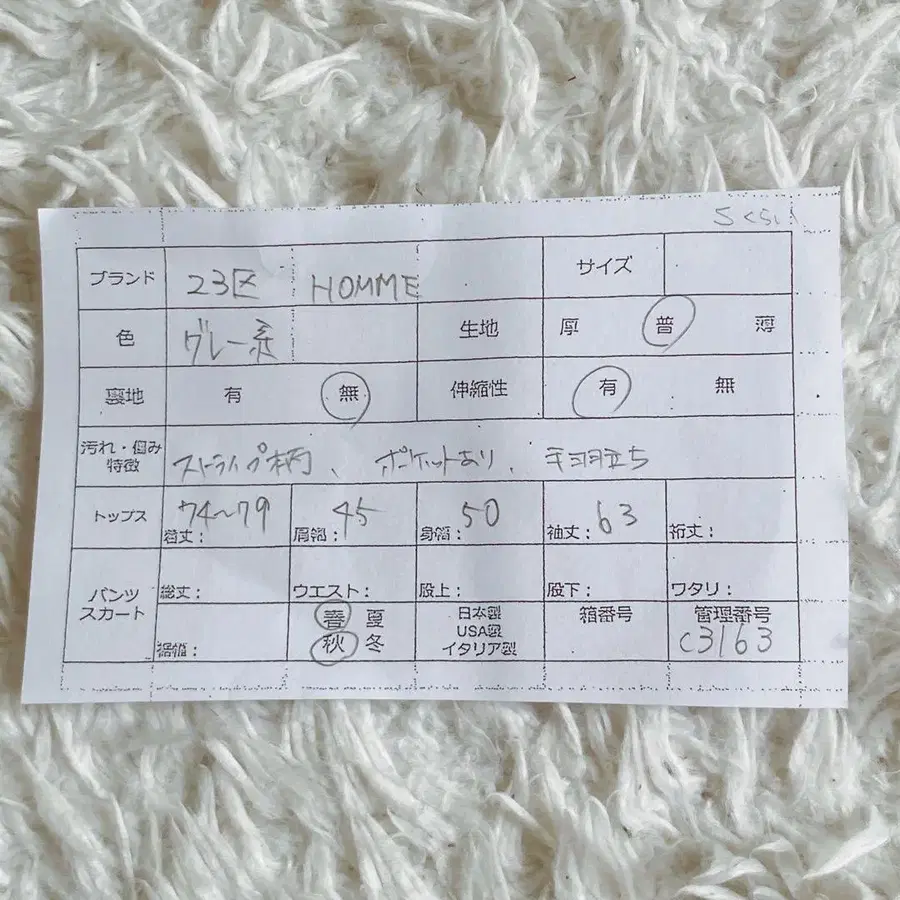 Sくらい
ブランド 23区 HOMME サイズ
色 グレー系 生地 厚 普 薄
裏地 有 無 伸縮性 有 無
汚れ・傷み
特徴 ストライプ柄、ポケットあり、毛羽立ち
トップス 着丈: 74~79 肩幅: 45 身幅: 50 袖丈: 63 裄丈:
パンツ
スカート 総丈: ウエスト: 股上: 股下: ワタリ:
裾幅: 春 夏
秋 冬 日本製
USA製
イタリア製 箱番号 管理番号
C3163